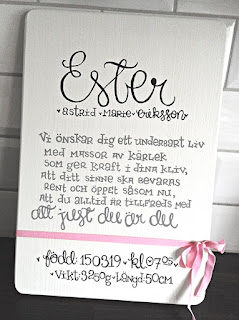 Ester
• astrid • marie • eriksson •
Vi önskar dig ett underbart liv
med massor av kärlek
som ger kraft i dina kliv,
att ditt sinne ska bevaras
rent och öppet såsom nu,
att du alltid är tillfreds med
att just du är du
♥ född: 150319 ♥ kl: 07:05 ♥
♥ vikt: 3250g ♥ längd: 50cm ♥